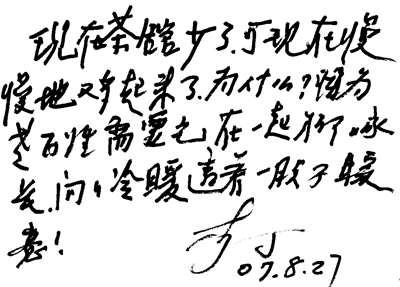 现在茶馆少了.可现在慢
慢地又多起来了.为什么?因为
老百姓需要它在一起聊
长.问々冷暖透着一股子暖
意!
李丁
07.8.27